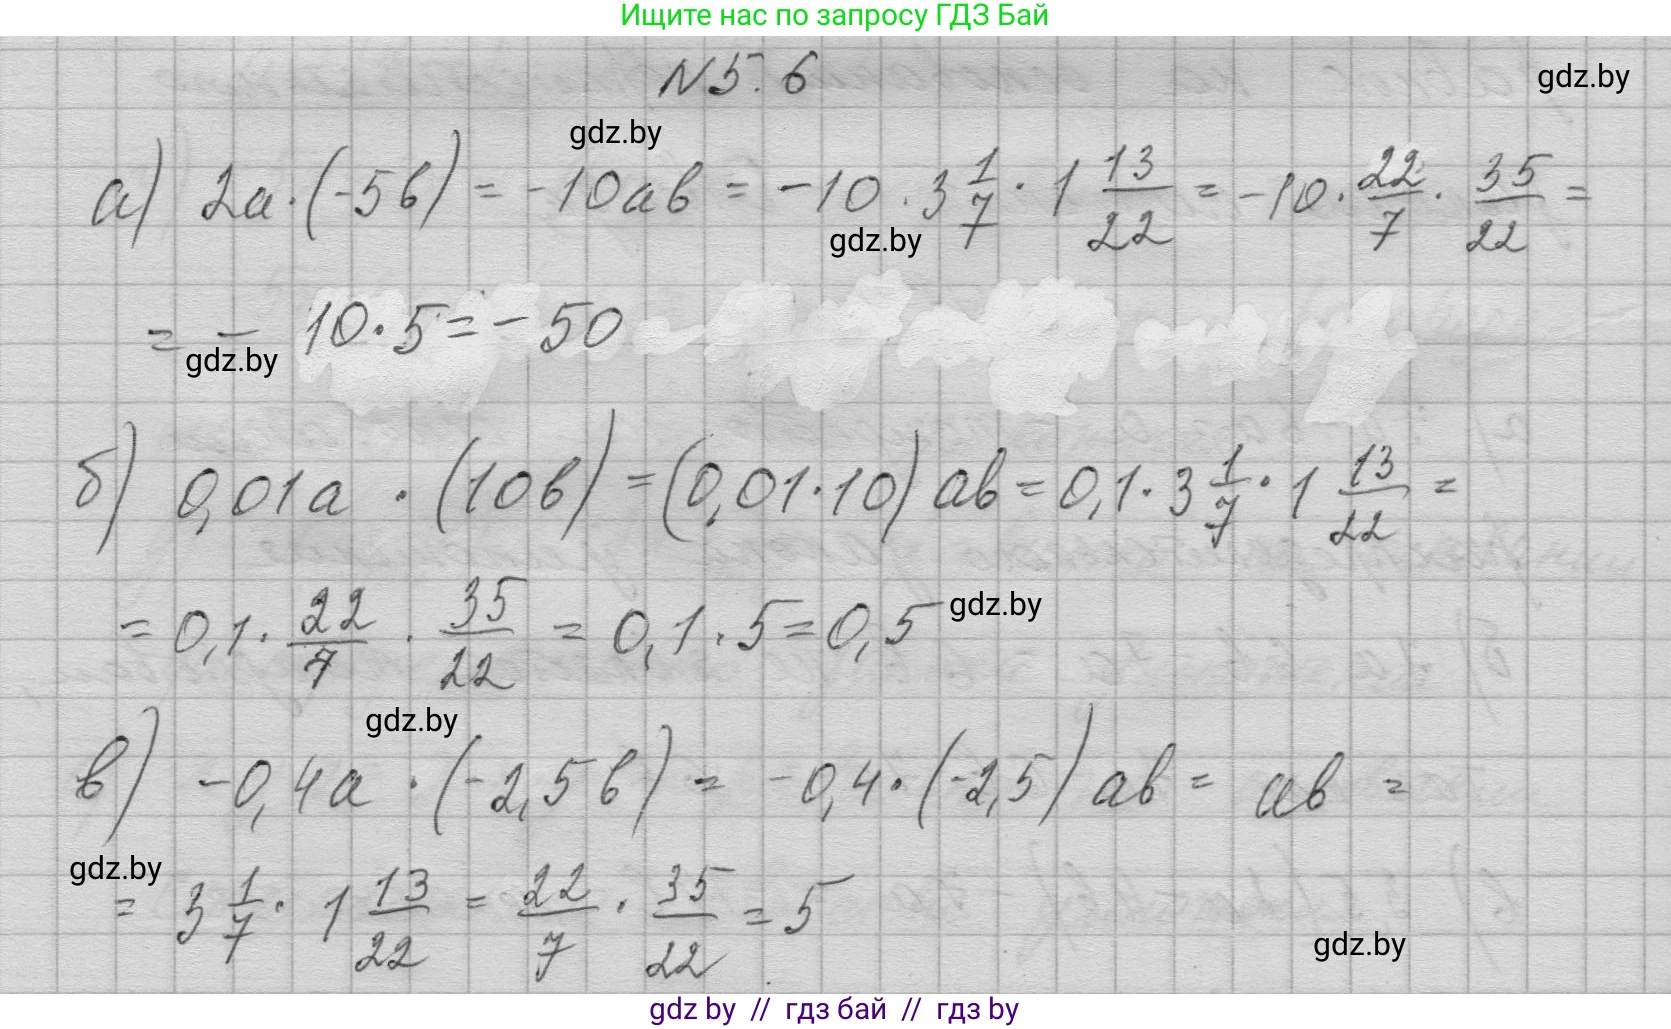 Ищите нас по запросу ГДЗ Бай
N 5.6
gdz.by
gdz.by
а) 2а·(-5в) = -10ав = -10·3 1/7·1 13/22 = -10·22/7·35/22 =
gdz.by
= - 10·5 = -50
gdz.by
б) 0,01а · (10в) = (0,01·10) ав = 0,1·3 1/7·1 13/22 =
= 0,1·22/7·35/22 = 0,1·5 = 0,5
gdz.by
gdz.by
в) -0,4а · (-2,5в) = -0,4·(-2,5) ав = ав =
gdz.by
= 3 1/7·1 13/22 = 22/7·35/22 = 5
gdz.by
gdz by // гдз бай // гдз by